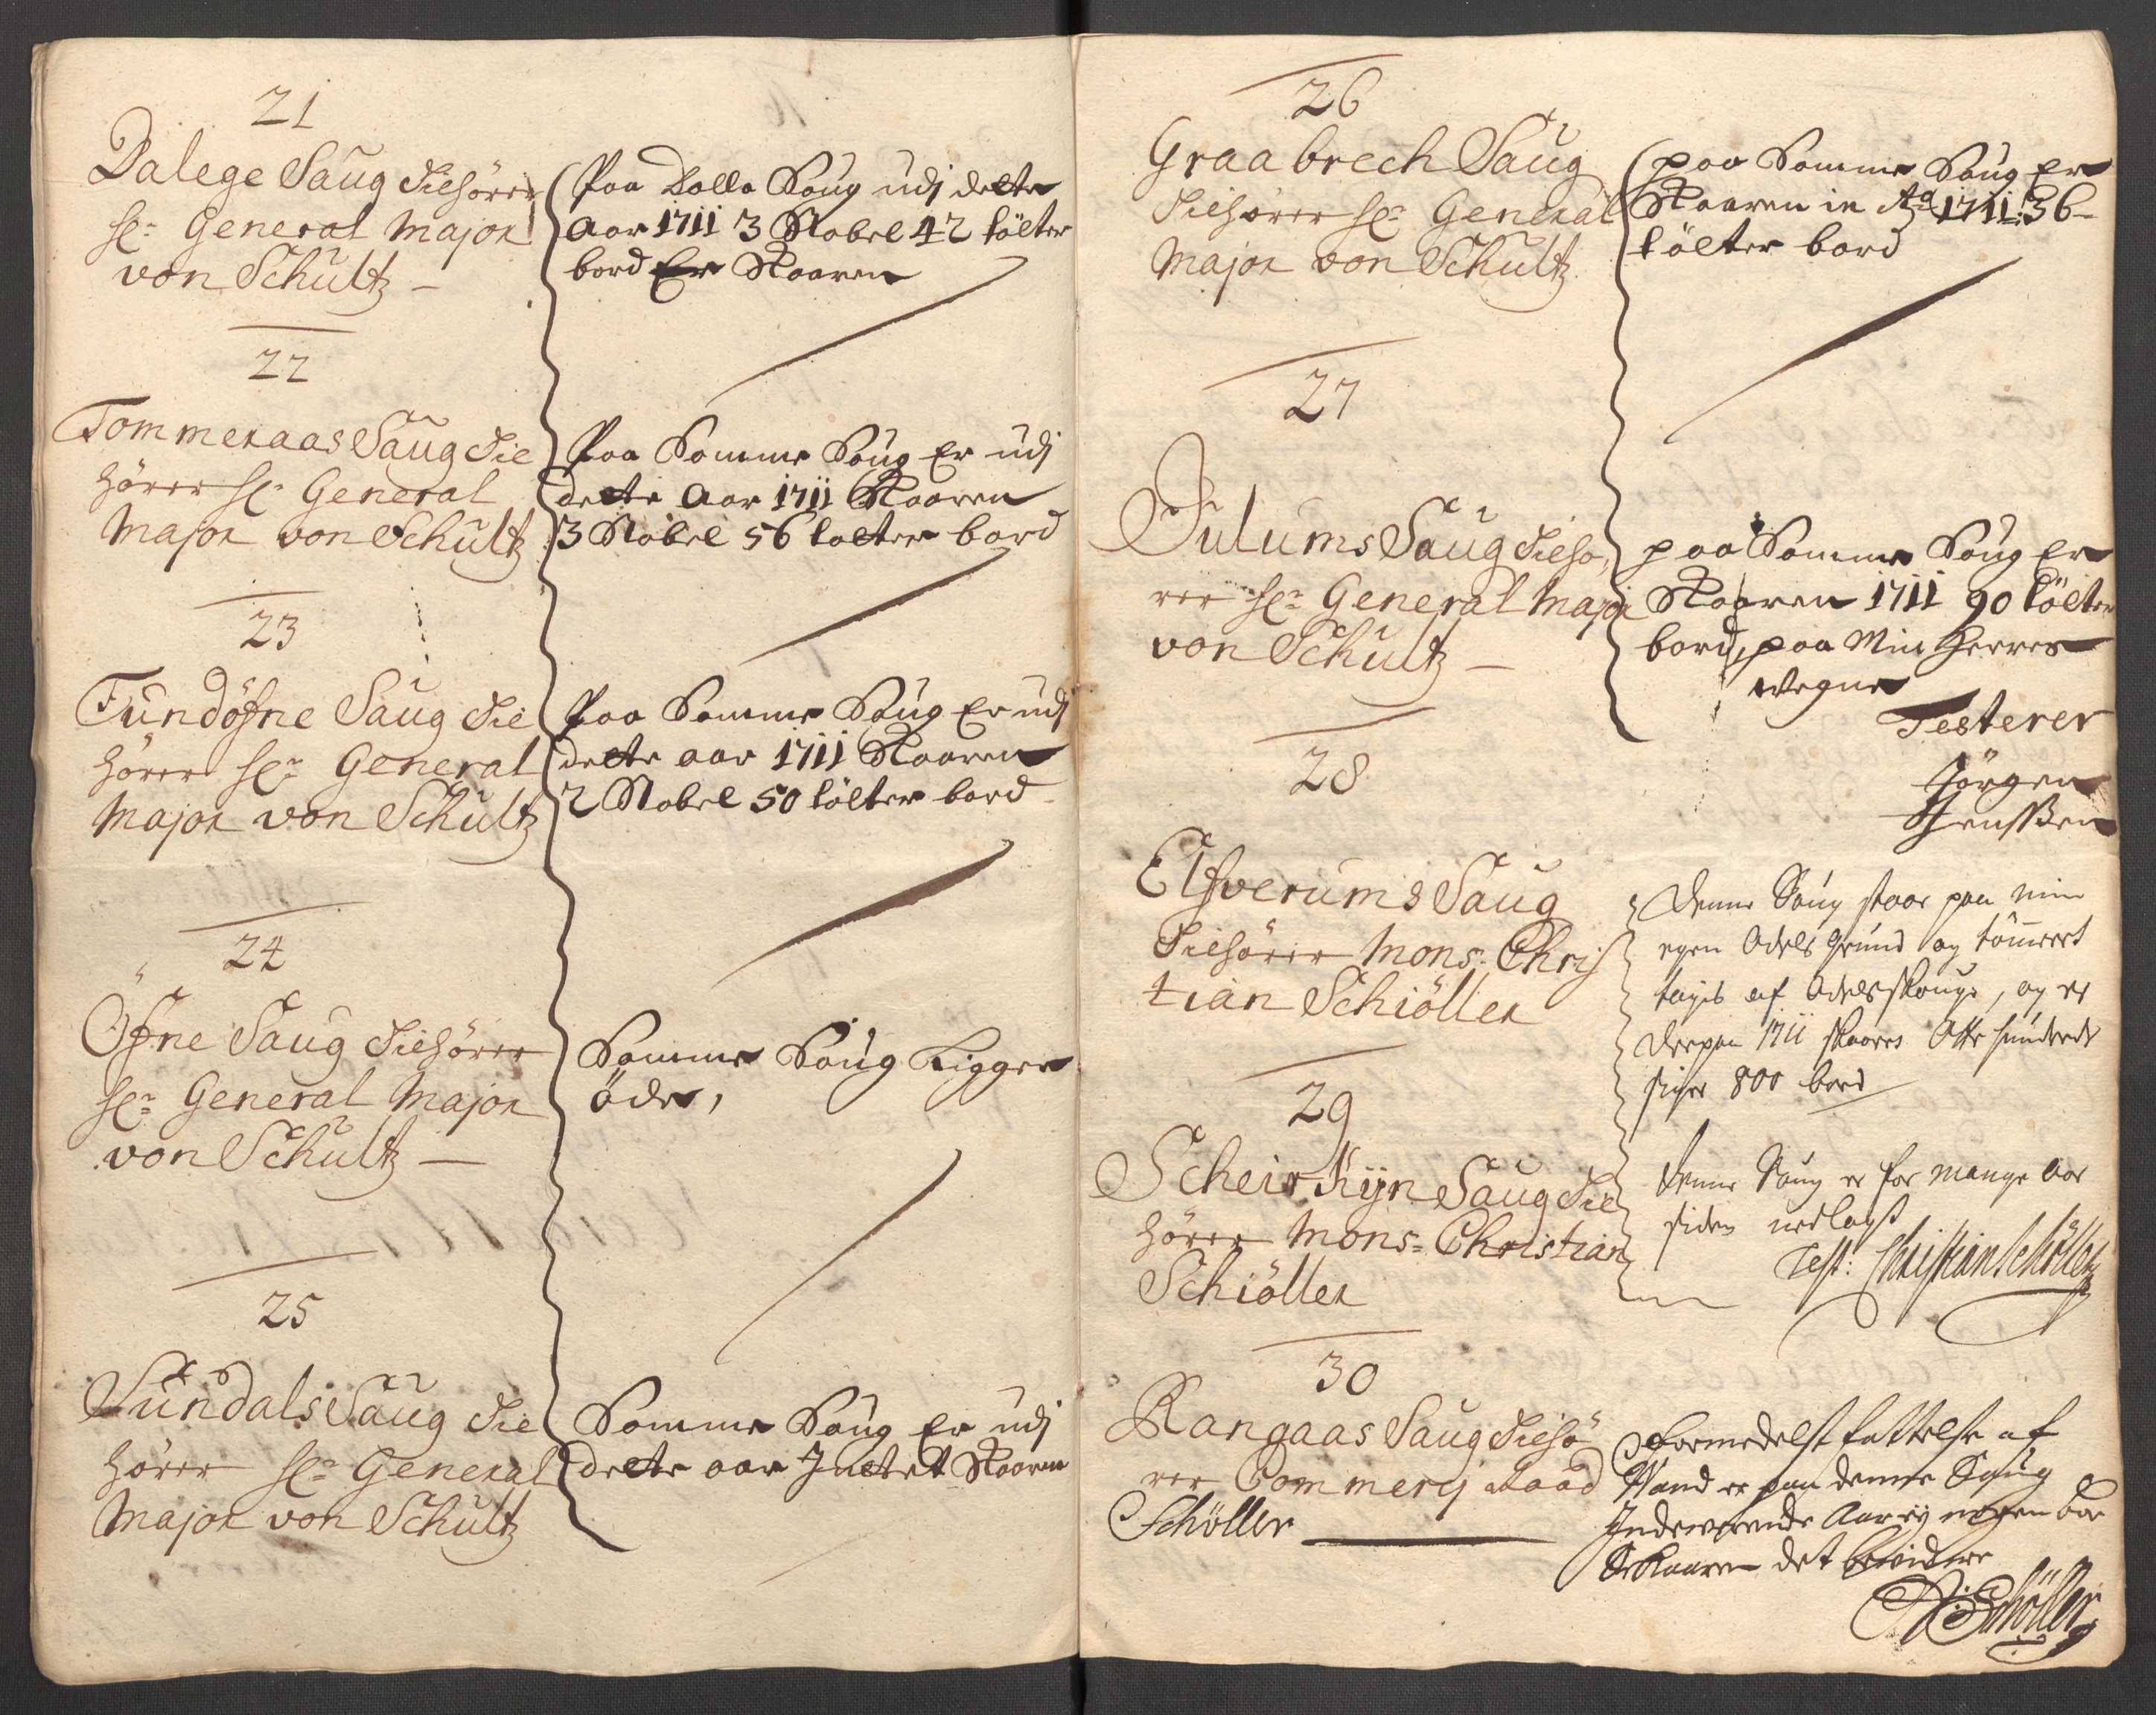 21
Dalege Saug Tilhörer
Sl: General Major
von Schultz –
Paa Dalle Saug udj dette
Aar 1711 3 Stabel 42 tölter
bord Er Skaaren
22
Tommeraas Saug Til
hörer Sl: General
Major von Schultz
Paa Samme Saug Er udj
dette Aar 1711 Skaaren
3 Stabel 56 tolter bord
23
Fundöfne Saug Til
hörer Sl: General
Major von Schultz
Paa Samme Saug Er udj
dette aar 1711 Skaaren
2 Stabel 50 tölter bord
24
Öfne Saug Tilhörer
Sl: General Major
von Schultz –
Samme Saug Ligger
öde,
25
Sundals Saug Til
hörer Sl: General
Major von Schultz
Samme Saug Er udj
dette aar Intet Skaaren
26
Graabrech Saug
Tilhörer Sl: General
Major von Schultz
paa Samme Saug Er
Skaaren in Ao 1711: 36
tölter bord
27
Julums Saug Tilhö,
rer Sl: General Major
von Schultz –
paa Samme Saug Er
Skaaren 1711 90 tölter
bord, paa Min Herres
Vegne
Testerer
Jörgen
Jenssen
28
Elfverums Saug
Tilhörer Mons: Chris
tian Schiöller
Denne Saug staar paa min
egen Odels grund og tömret
tagis af Odelsskouge, og er
derpaa 1711 skaaret Otte hundrede
siger 800 bord
29
Scheirkijn Saug Til
hörer Mons: Christian
Schiöller
denne Saug er for mange Aar
siden nedlagt
Test: Christian Schöller
30
Rangaas Saug Tilhö
rer Commerj Raad
Schöller
Formedelst fattelse af
Vand er paa denne Saug
Indeverende Aar ej nogen bor
Skaaren det bevidner
Schöller